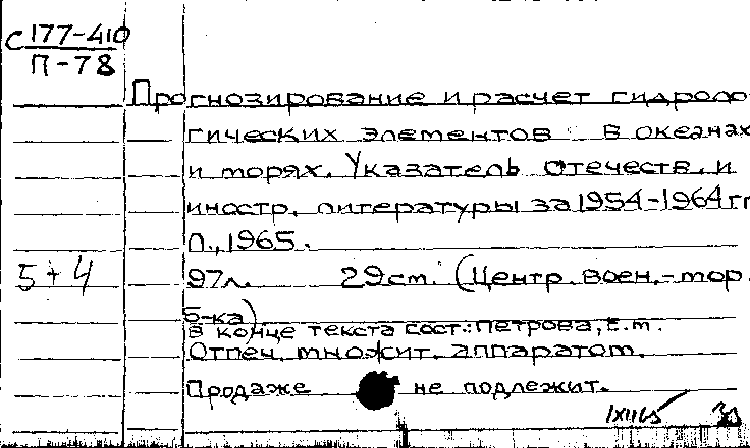 с177-410
П-78
Прогнозирование и расчет гидроло
гических элементов в океанах
и морях. Указатель отечеств. и
иностр. литературы за 1954-1964 гг
Л., 1965.
5+4
97л. 29см. (Центр. воен.-мор.
б-ка)
В конце текста сост.: Петрова, Е.М.
Отпеч. множит. аппаратом.
Продаже не подлежит.